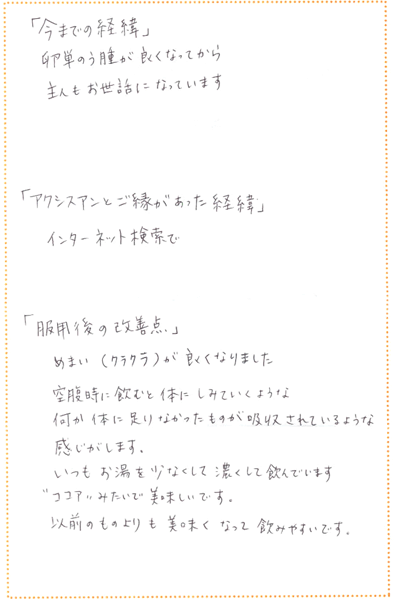 「今までの経緯」
卵巣のう腫が良くなってから
主人もお世話になっています
「アクシスアンとご縁があった経緯」
インターネット検索で
「服用後の改善点」
めまい(クラクラ)が良くなりました
空腹時に飲むと体にしみていくような
何か体に足りなかったものが吸収されているような
感じがします。
いつもお湯を少なくして濃くして飲んでいます
"ココア"みたいで美味しいです。
以前のものよりも美味くなって飲みやすいです。